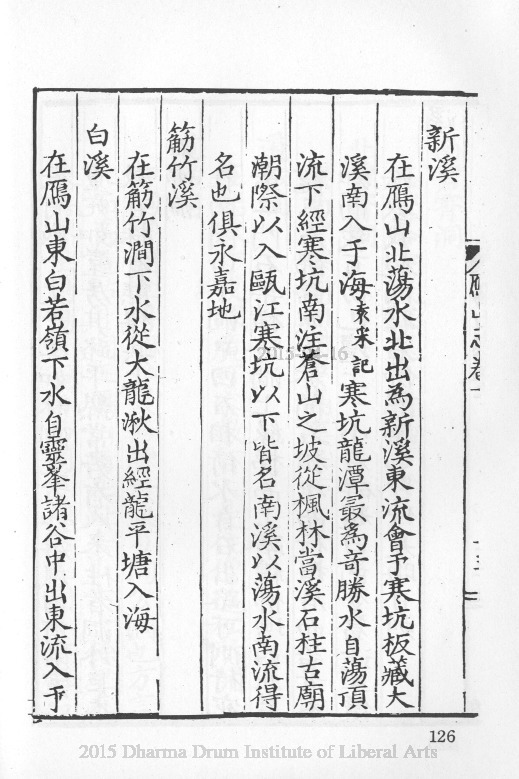 新溪
在鴈山北蕩水北出爲新溪東流會于寒坑板藏大
溪南入于海袁采記寒坑龍潭最爲奇勝水自蕩頂
流下經寒坑南注蒼山之坡從楓林當溪石柱古廟
潮際以入甌江寒坑以下皆名南溪以蕩水南流得
名也俱永嘉地
筋竹溪
在筋竹澗下水從大龍湫出經龍平塘入海
白溪
在鴈山東白若嶺下水自靈峯諸谷中出東流入于
126
2015 Dharma Drum Institute of Liberal Arts